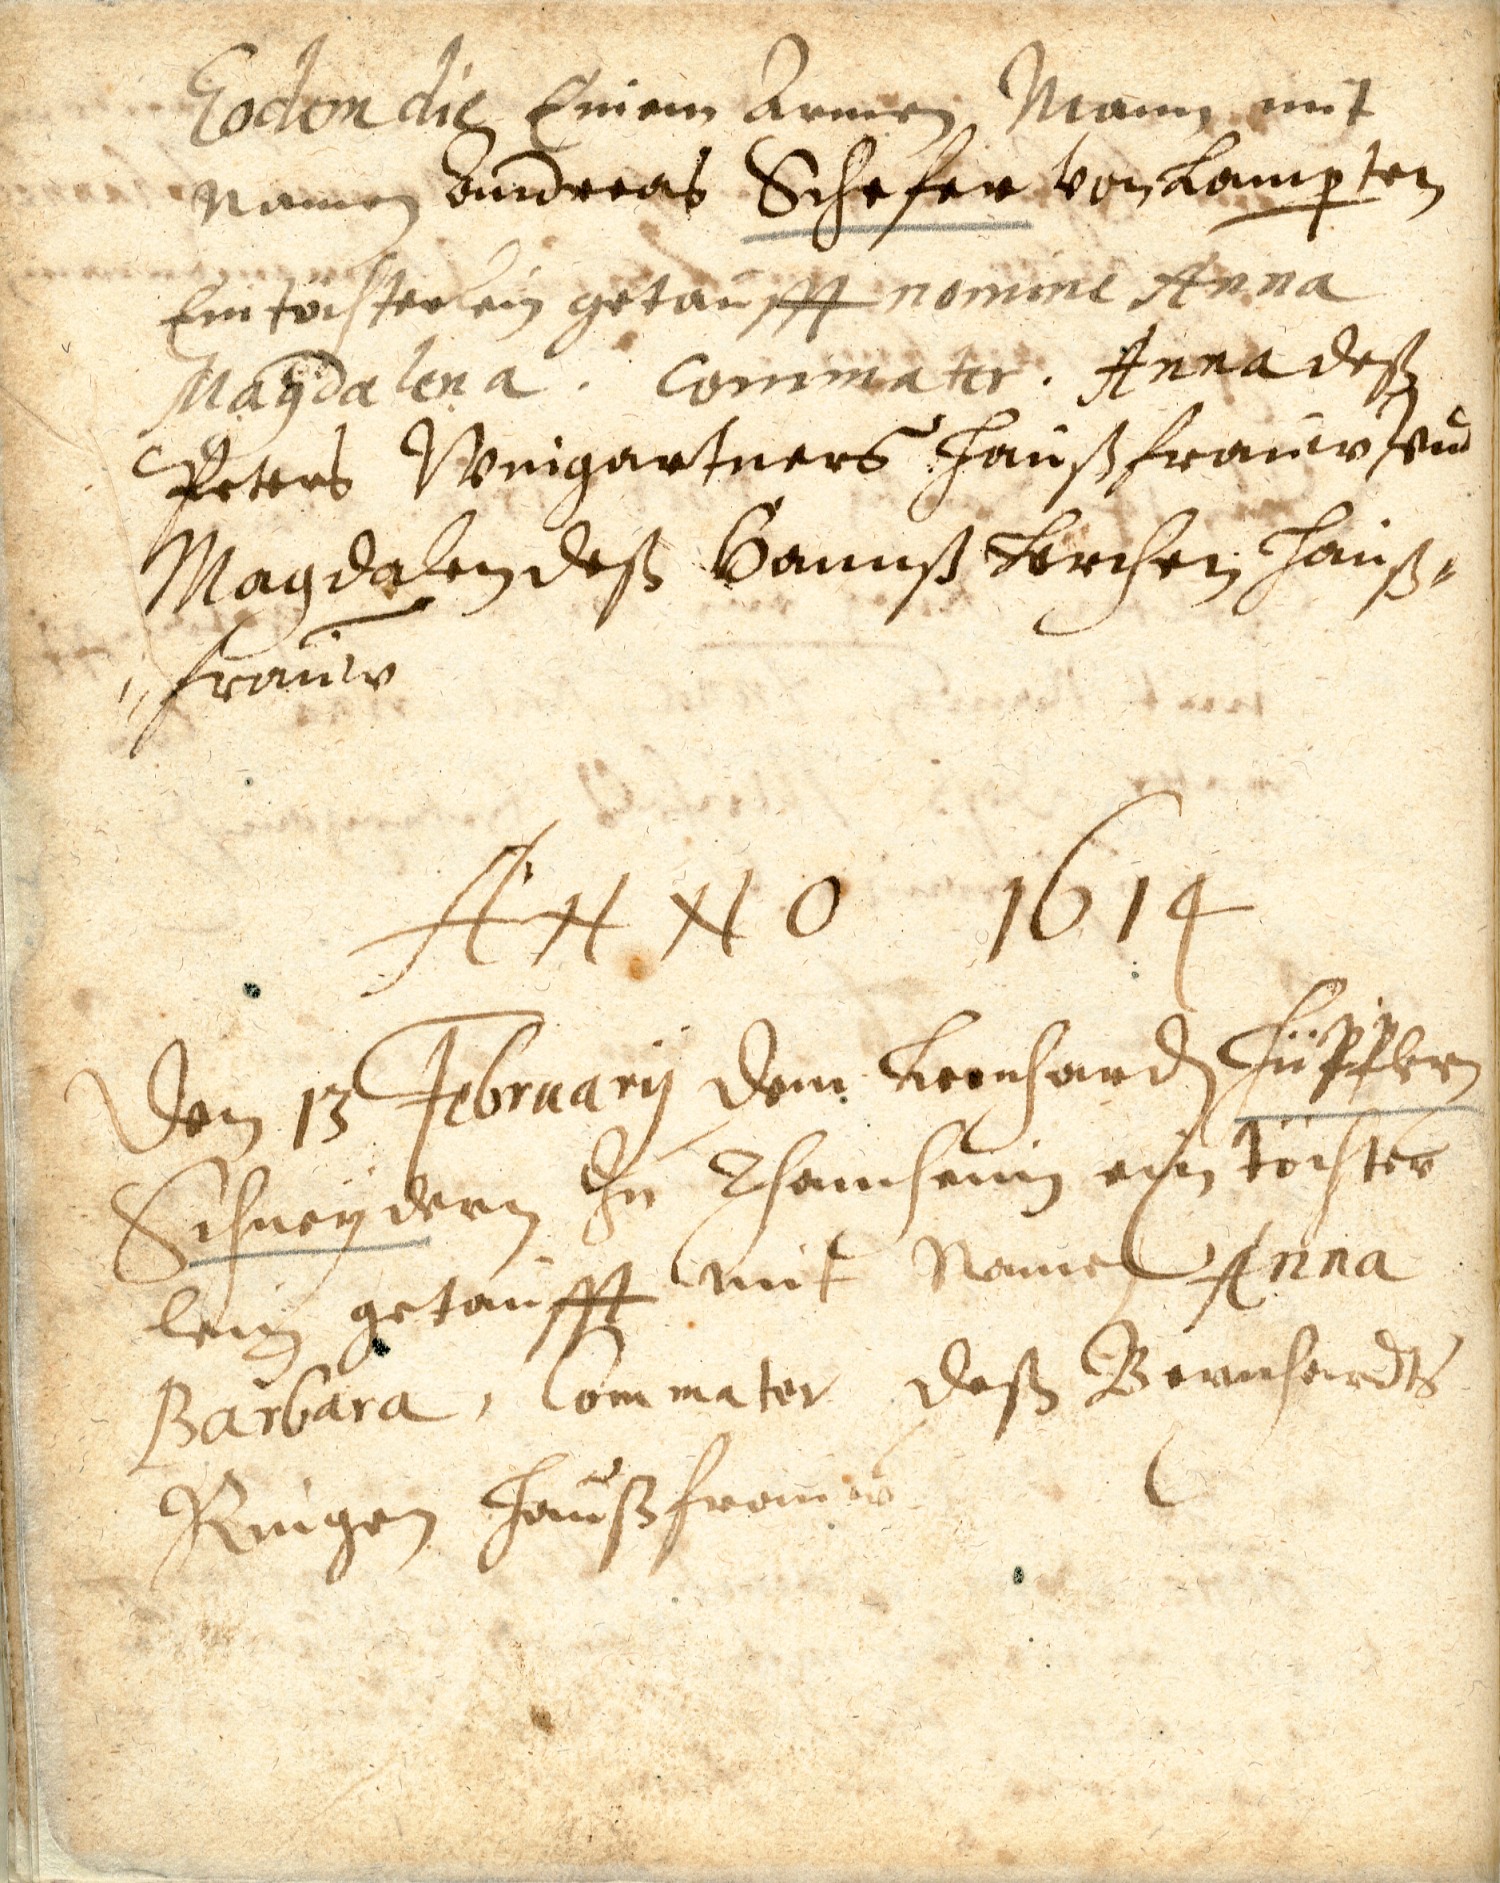 Eodem die Einem Armen Mann mit
Namen Andreas Schefer von Kampten
Ein töchterlein getaufft nomine Anna
Magdalena. Commater. Anna deß
Peters Weingartners Haußfrauw vnd
Magdalen deß Hannß Lerchen Hauß=
=frauw
ANNO 1614
Den 13 Februarij dem Leonhardt Hüpplern
Schneydern zu Thanheim ein töchter
lein getaufft mit Namen Anna
Barbara, Commater deß Bernhardts
Ringen Haußfrauw